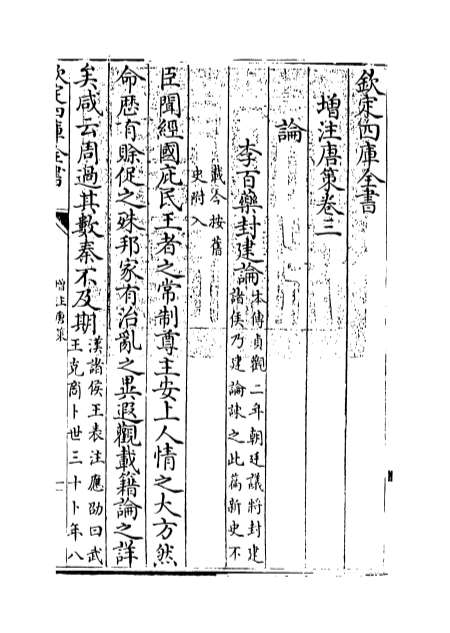 欽定四庫全書
增注唐策卷三
論
李百藥封建論本傳貞觀二年朝廷議將封建
諸侯乃建論諫之此篇新史不
載今按舊
史附入
臣聞經國庇民王者之常制尊主安上人情之大方然
命歷有賖促之殊邦家有治亂之異遐觀載籍論之詳
矣咸云周過其數秦不及期漢諸侯王表注應劭曰武
王克商卜世三十卜年八
欽定四庫全書
增注唐策
一